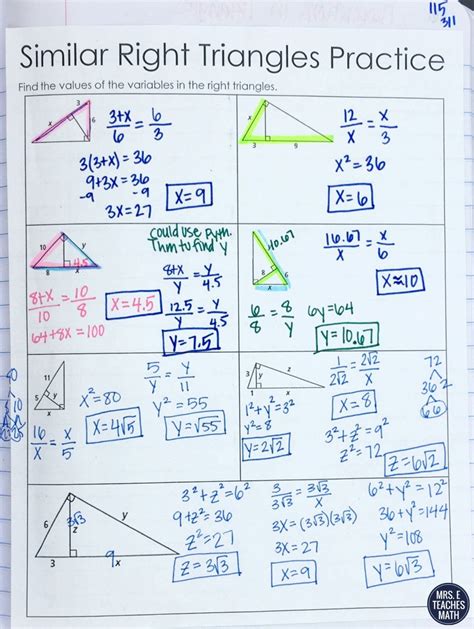 115
311
Similar Right Triangles Practice
Find the values of the variables in the right triangles.
3
x
6
3+x/6 = 6/3
3(3+x) = 36
9+3x = 36
-9 -9
3x = 27
x=9
x
3
9
12/x = x/3
x² = 36
x=6
10
y
8
x
4.5
8+x/10 = 10/8
64+8x = 100
x=4.5
could use Pyth.
Thm to find y
8+x/y = y/4.5
12.5/y = y/4.5
y=7.5
10.67
8
6
6/8 = 8/y
6y=64
y=10.67
16.67/x = x/6
x≈10
11
5
y
x
80
10
16/x = x/5
x²=80
x=4√5
5/y = y/11
y² = 55
y=√55
3
y
z
1
x
1²+y²=3²
y²=8
y=2√2
1/2√2 = 2√2/x
x=8
3²+z²=9²
z²=72
z=6√2
72
36 2
6 6
6
3√3
z
y
3
9
x
3²+z²=6²
9+z²=36
z²=27
z=3√3
3/3√3 = 3√3/x
3x=(3√3)(3√3)
3x=27
x=9
6²+y²=12²
36+y²=144
y²=108
y=6√3
MRS. E
TEACHES
MATH